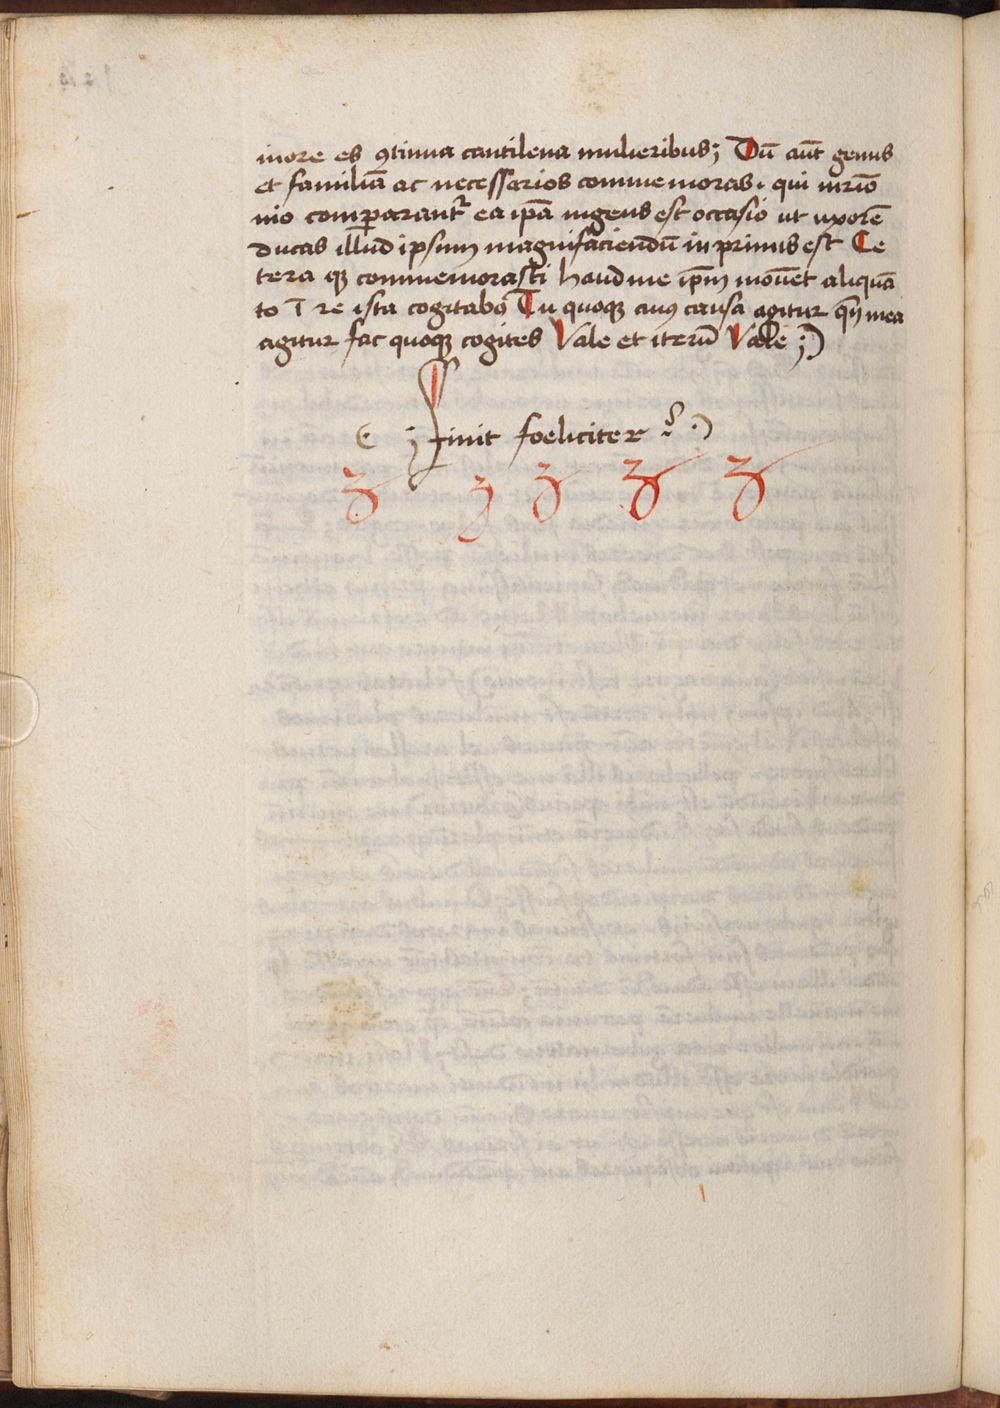 more es ꝯtinua cantilena mulieribus; Dū aūt genus
et familiā ac necessarios commemoras. qui mr̄io
nio comparant᷑ ea ip̄a ingens est occasio ut uxorē
ducas illud ipsum magnifaciendū in primis est Ce
tera qꝫ commemorasti haud me ip̄m mouēt aliquā
to ī re ista cogitabo Tu quoqꝫ cuiꝰ causa agitur qn̄ mea
agitur fac quoqꝫ cogites Vale et iterū Vale ;)
; Finit foeliciter